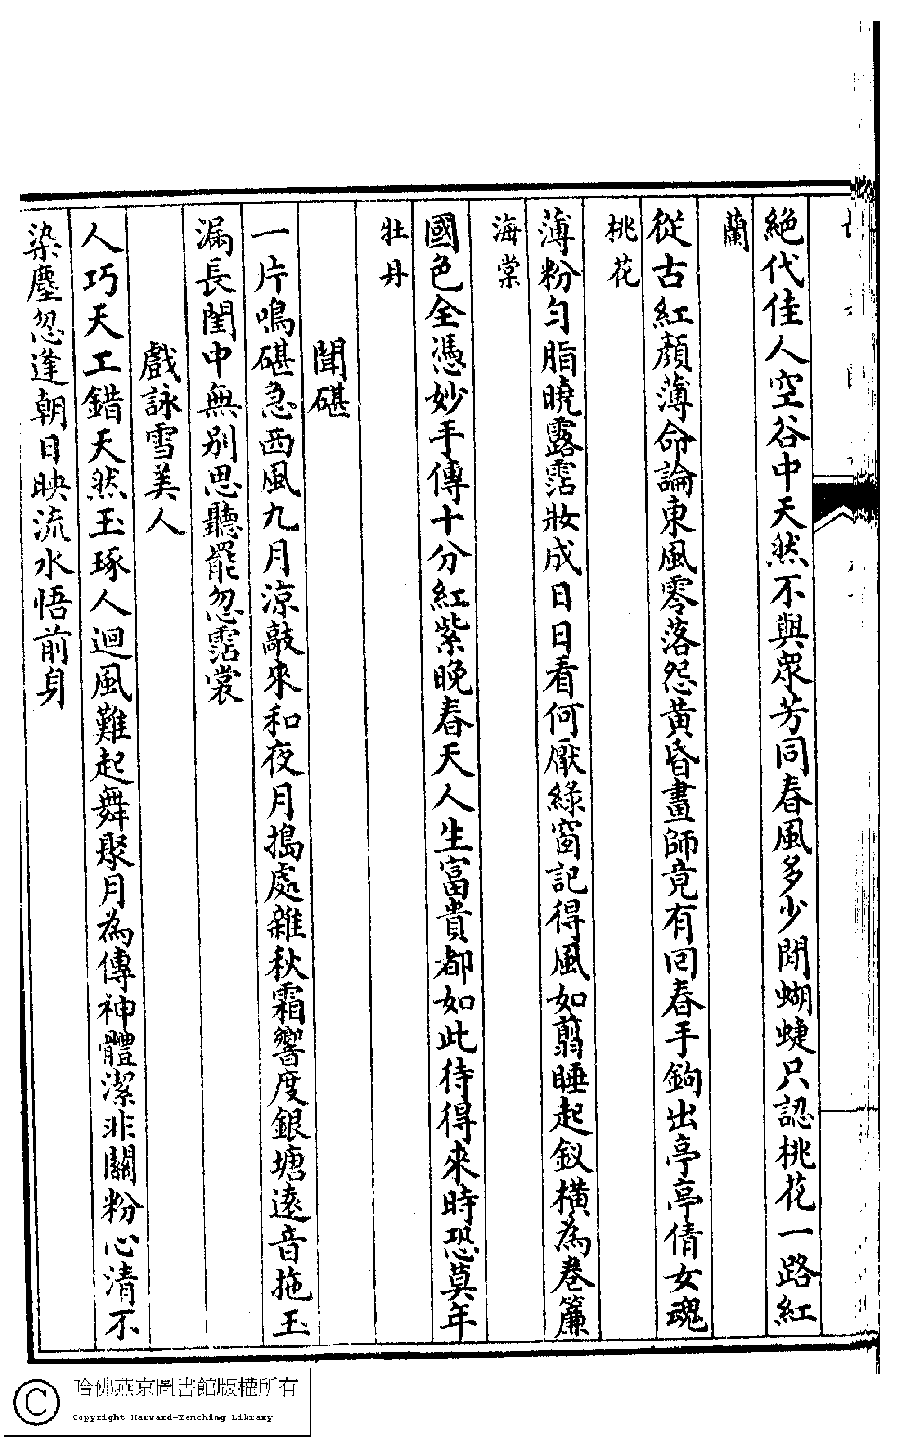 絕代佳人空谷中天然不與眾芳同春風多少閒蝴蝶只認桃花一路紅
蘭
從古紅顏薄命論東風零落怨黃昏畫師竟有回春手鉤出亭亭倩女魂
桃花
薄粉勻脂曉露霑妝成日日看何厭綠窗記得風如翦睡起釵橫為卷簾
海棠
國色全憑妙手傳十分紅紫晚春天人生富貴都如此待得來時恐莫年
牡丹
聞碪
一片鳴碪急西風九月涼敲來和夜月搗處雜秋霜響度銀塘遠音拖玉
漏長閨中無別思聽罷忽霑裳
戲詠雪美人
人巧天工錯天然玉琢人迴風難起舞聚月為傳神體潔非關粉心清不
染塵忽逢朝日映流水悟前身
哈佛燕京圖書館版權所有
Copyright Harvard-Yenching Library